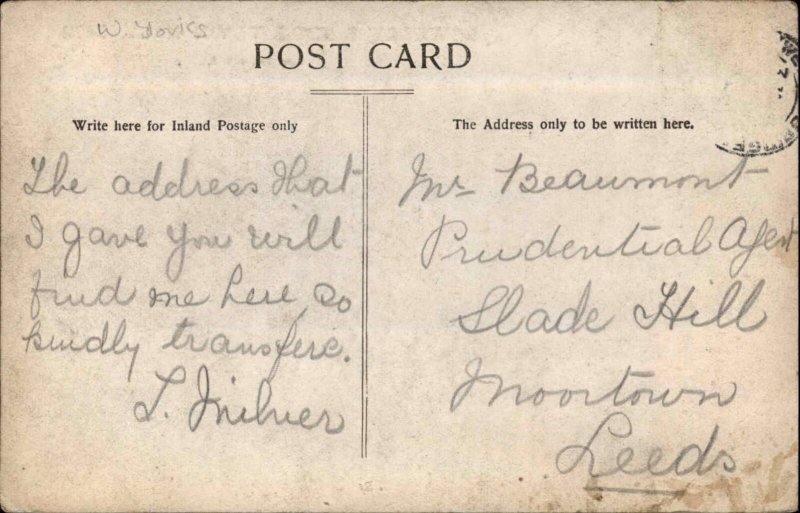 W. Yorks
POST CARD
Write here for Inland Postage only
The Address only to be written here.
The address that
I gave you will
find me here, so
kindly transfere.
L. Milner
Mr Beaumont
Prudential Agent
Slade Hill
Moortown
Leeds